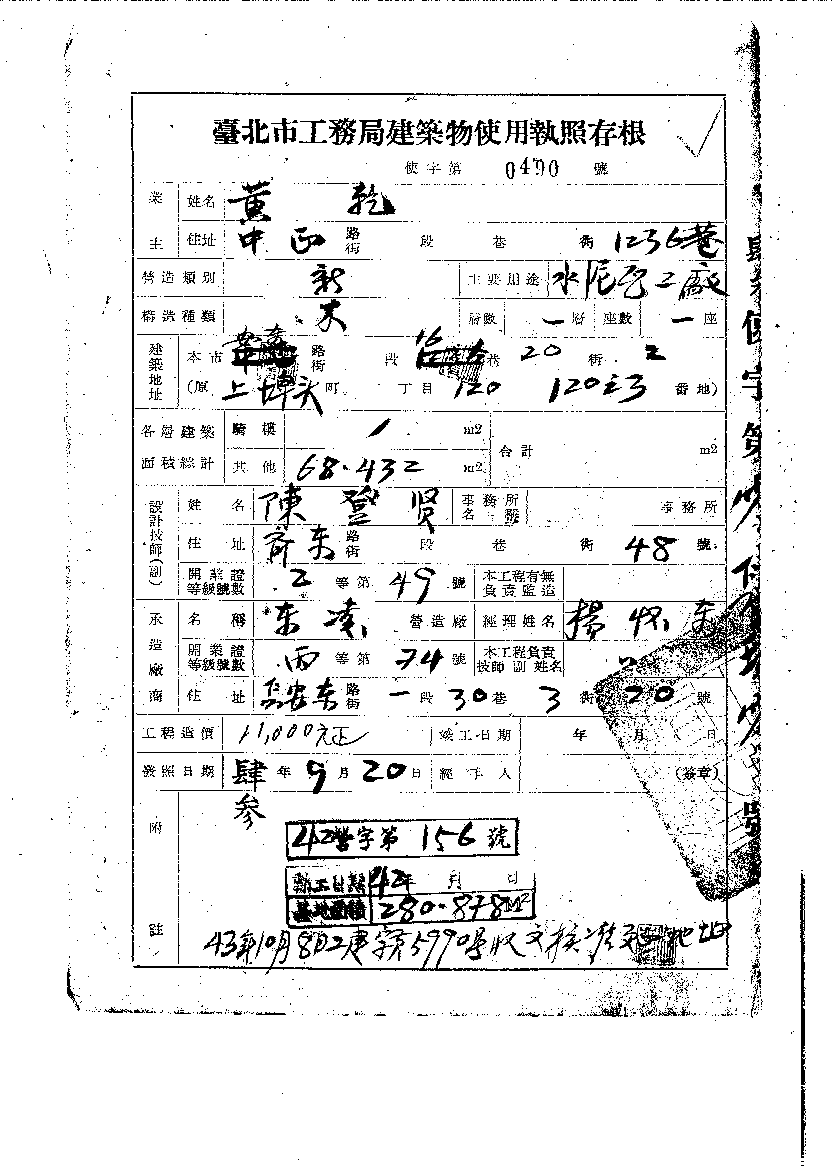 臺北市工務局建築物使用執照存根
使字第 0490 號
業主 姓名 黃 乾
住址 中正 路街 段 巷 衖 1236巷
營造類別 新 主要用途 水泥瓦工廠
構造種類 木 層數 一層 座數 一座
建築地址 本市 路街 段 巷 20 衖 2
(原 上埤头 町 丁目 120 120之3 番地)
各層建築面積總計 騎樓 / m2 合計 m2
其他 68.432 m2
設計技師(副) 姓名 陳登贤 事務所名稱 事務所
住址 齐东 路街 段 巷 衖 48 號
開業證等級號數 2 等第 49 號 本工程有無負責監造
承造廠商 名稱 东凌 營造廠 經理姓名 楊怀东
開業證等級號數 丙 等第 74 號 本工程負責技師副姓名
住址 長安东 路街 一段 30 巷 3 衖 20 號
工程造價 11,000元正 竣工日期 年 月 日
發照日期 肆参 年 9 月 20 日 經手人 (簽章)
附註
42營字第 156 號
動工日期 42年 月 日
基地面積 280.878M²
43年10月8日工建字第5990號收文核准 地址